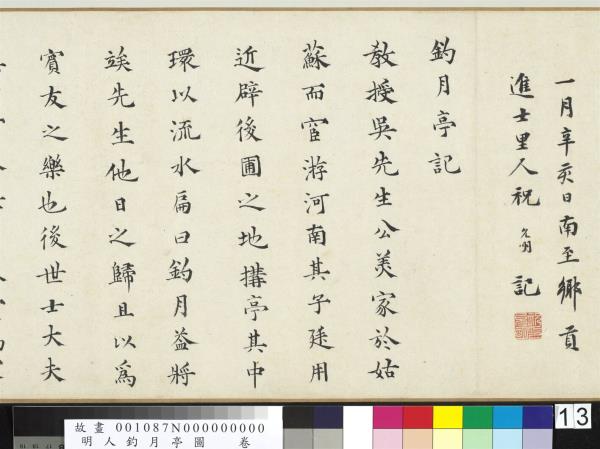 一月辛亥日南至鄉貢
進士里人祝允明記
釣月亭記
教授吳先生公美家於姑
蘇而宦游河南其子廷用
近辟後圃之地搆亭其中
環以流水扁曰釣月蓋將
竢先生他日之歸且以為
賓友之樂也後世士大夫
13
故畫 001087N000000000
明人釣月亭圖 卷